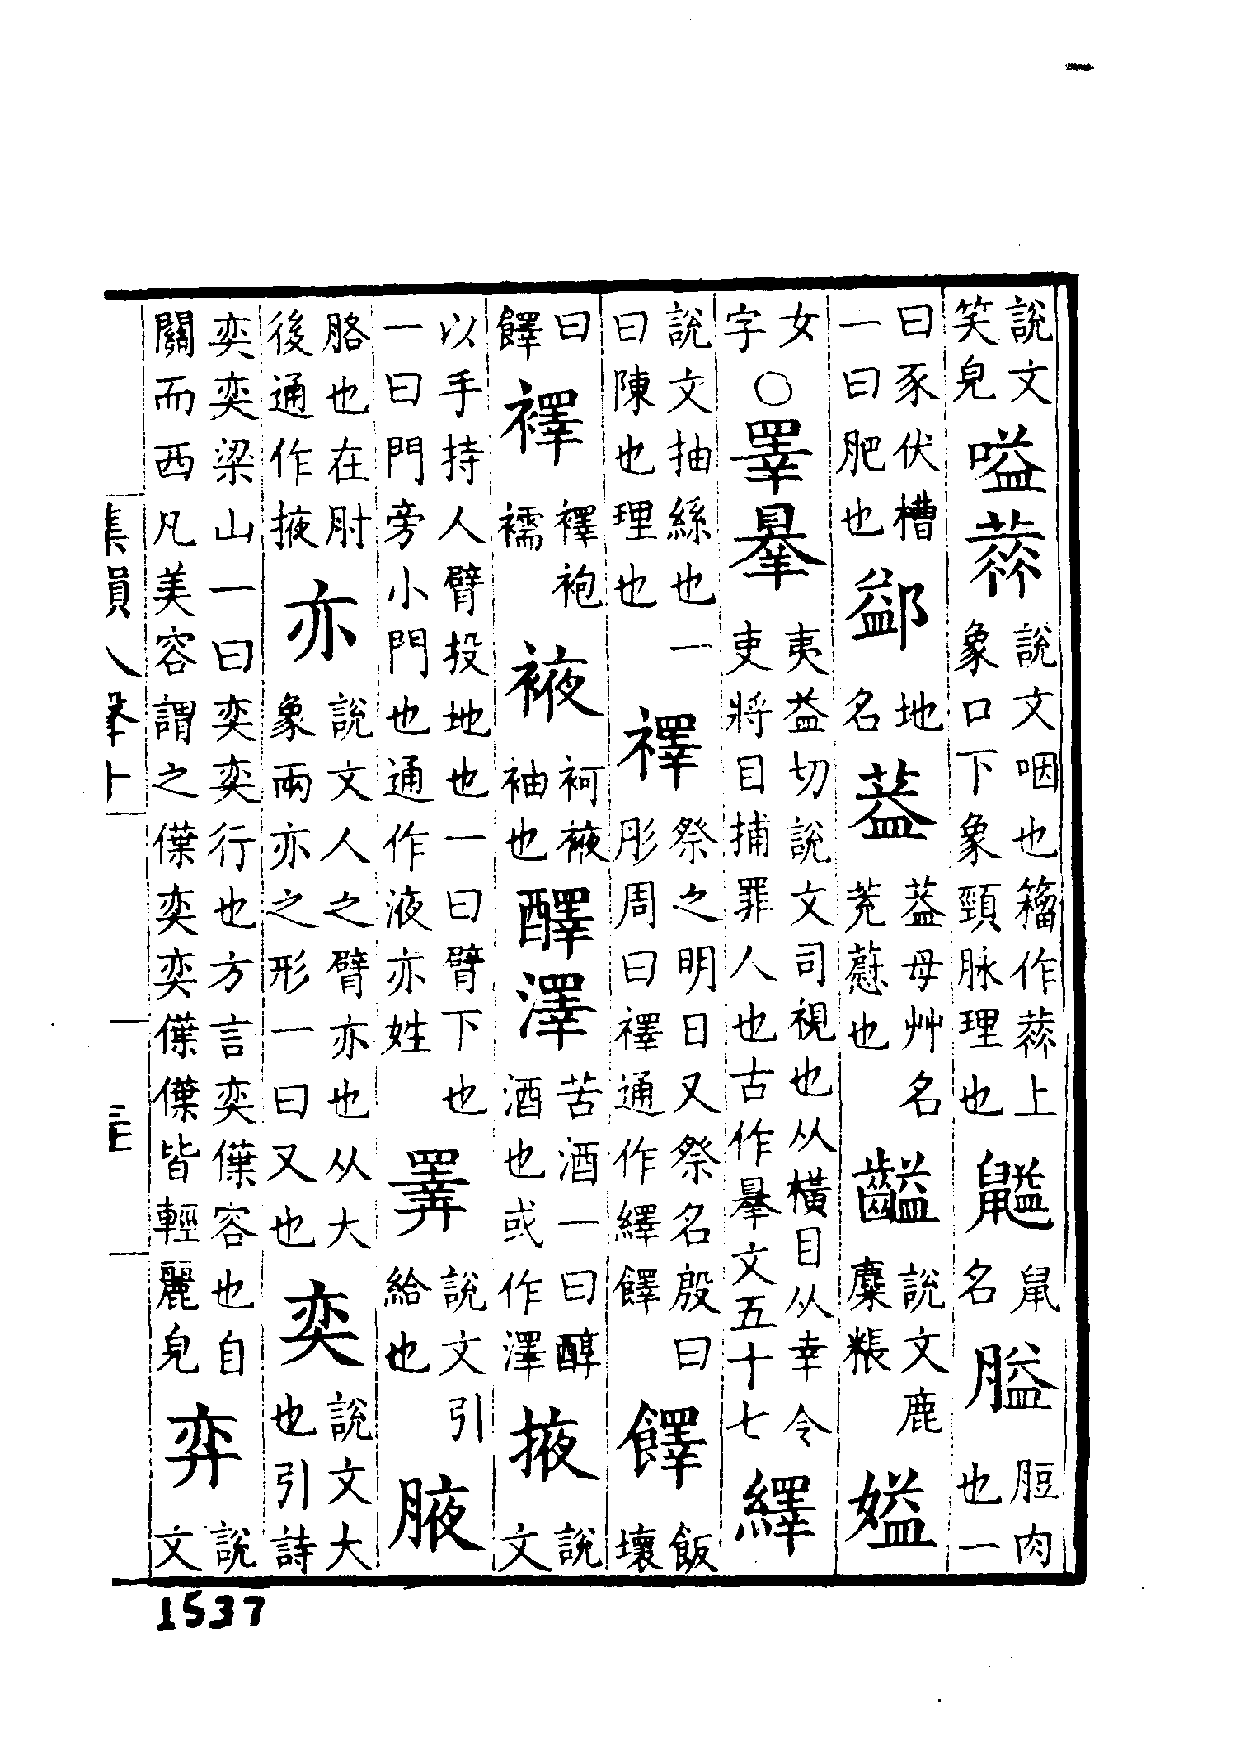 說文笑皃 嗌 說文咽也籀作上象口下象頸脉理也 鼠名 膉 脰肉也一
曰豕伏槽一曰肥也 地名 母艸名茺蔚也 齸 說文鹿麋粻 㜋
女字○睪 夷益切說文司視也从橫目从幸令吏將目捕罪人也古作文五十七 繹
說文抽絲也一曰陳也理也 祭之明日又祭名殷曰肜周曰通作繹 飯壞
曰 襗 襗袍襦 袖也 醳澤 苦酒一曰醇酒也或作澤 掖 說文
以手持人臂投地也一曰臂下也一曰門旁小門也通作液亦姓 𢍰 說文引給也 腋
胳也在肘後通作掖 亦 說文人之臂亦也从大象兩亦之形一曰又也 奕 說文大也引詩
奕奕梁山一曰奕奕行也方言奕僷容也自關而西凡美容謂之僷奕奕僷僷皆輕麗皃 弈 說文
集韻入聲十
1537